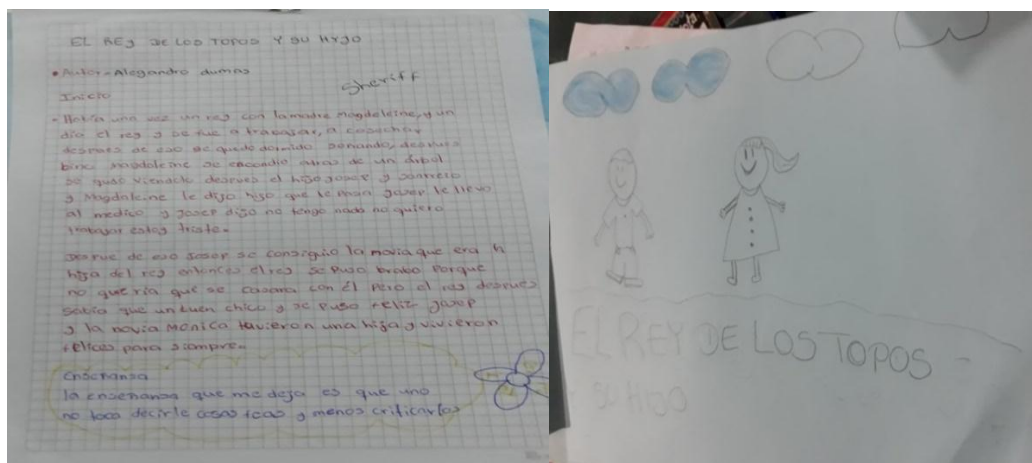 EL REY DE LOS TOPOS Y SU HIJO
• Autor - Alegandro dumas
Sheriff
Inicio
- Había una vez un rey con la madre Magdeleine, y un
día el rey y se fue a trabajar, a cosechar
después de eso se quedo dormido sonando, despues
bino magdaleine se encondio atras de un árbol
se quso viendole despues el hijo Josep y
y Magdaleine le dijo hijo que te pasa gasep le llevo
al medico y Josep dijo no tengo nada no quiero
trabajar estoy triste.
Despue de eso Josep se consiguio la novia que era h
hija del rey entonces el rey se puso brabo porque
no queria que se casara con Él pero el rey despues
sabia que un buen chico y se puso feliz gasep
y la novia Monica tuvieron una hija y vivieron
felices para siempre.
Enseñansa
la enseñansa que me deja es que uno
no toca decirle cosas feas y menos criticarlos
EL REY DE LOS TOPOS -
SU HIJO